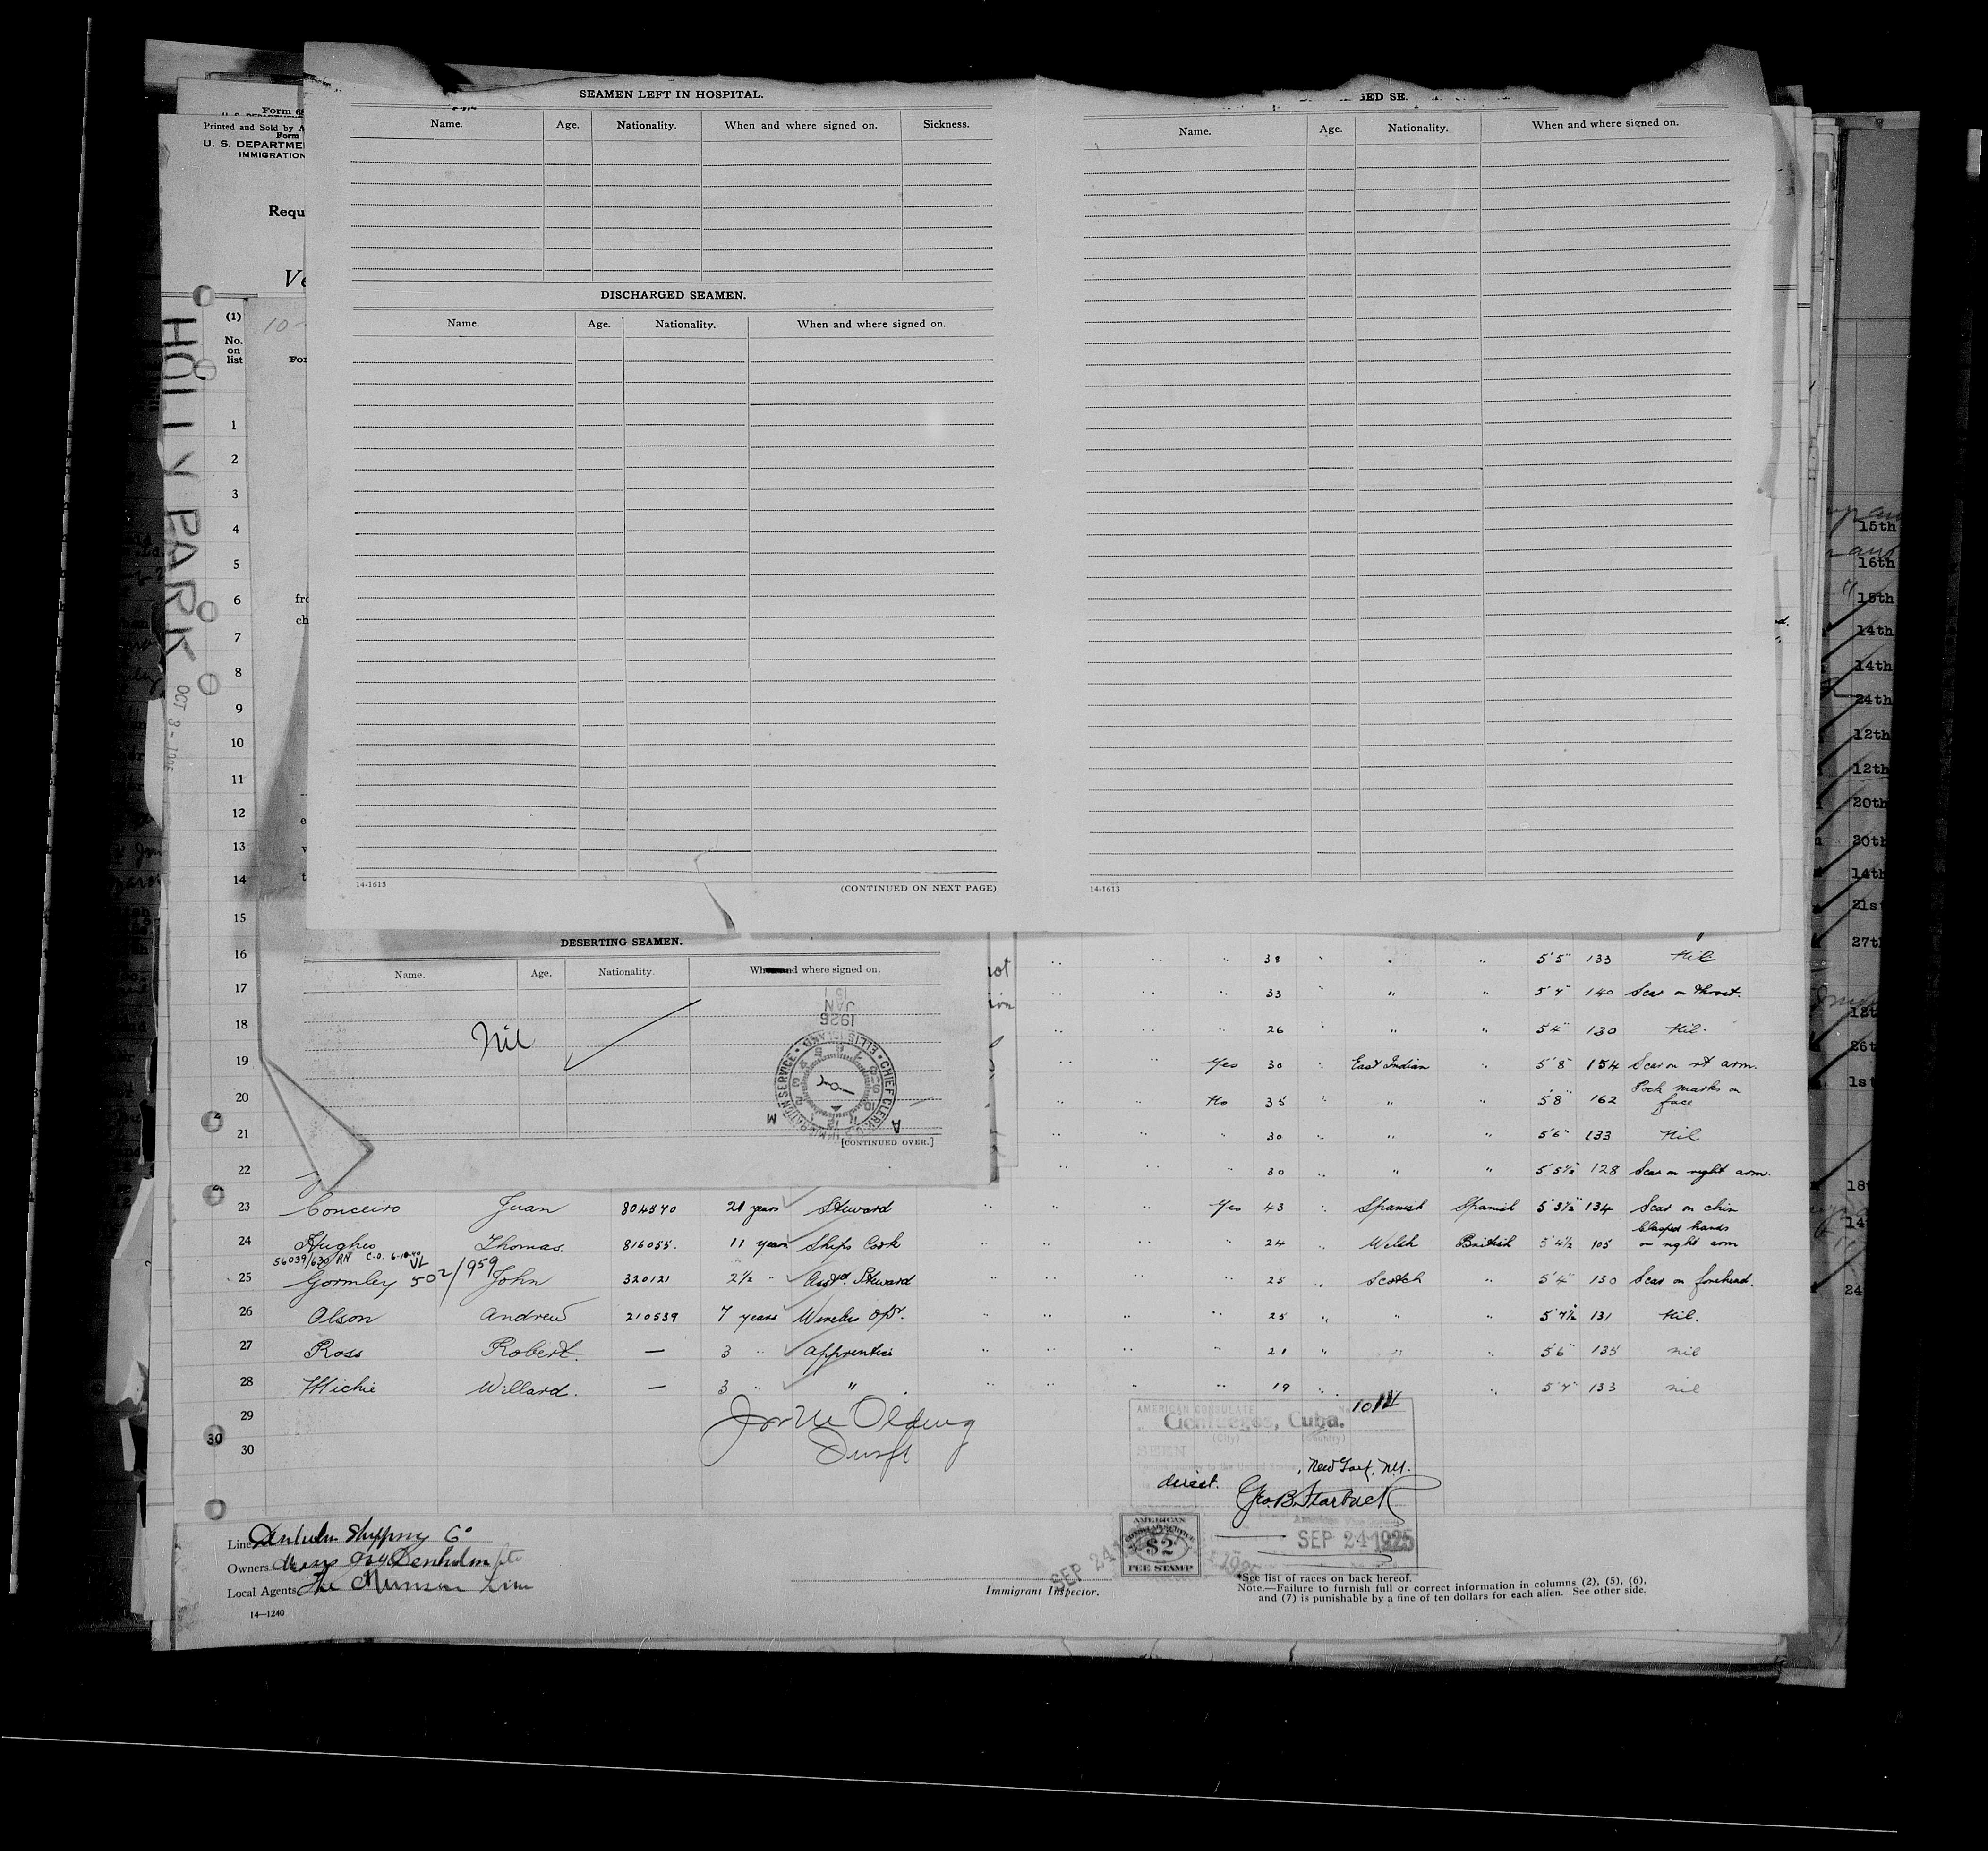 Form
Printed and Sold by A
Form
U. S. DEPARTME
IMMIGRATION
Requ
(1)
No.
on
list
HOLLY PARK
OCT 3 -
SEAMEN LEFT IN HOSPITAL.
Name. Age. Nationality. When and where signed on. Sickness.
DISCHARGED SEAMEN.
Name. Age. Nationality. When and where signed on.
14-1613 (CONTINUED ON NEXT PAGE)
GED SE
Name. Age. Nationality. When and where signed on.
14-1613
1
2
3
4
5
6
7
8
9
10
11
12
13
14
15
16
17
18
19
20
21
22
DESERTING SEAMEN.
Name. Age. Nationality. When and where signed on.
Nil
JAN
1926
ELLIS ISLAND. CHIEF CLERK U.S. IMMIGRATION SERVICE
A M
[CONTINUED OVER.]
" " " 38 " " " 5'5" 133 Nil
" " " 33 " " " 5'7" 140 Scar on throat.
26 " " " 5'4" 130 Nil.
" " Yes 30 " East Indian " 5'8" 154 Scar on rt arm.
" " No 35 " " 5'8" 162 Pock marks on face
" " " 30 " " " 5'6" 133 Nil
" " " 30 " " " 5'5½" 128 Scar on right arm.
23 Conceiro Juan 804570 21 years Steward " " Yes 43 " Spanish Spanish 5'3½" 134 Scar on chin
24 Hughes Thomas. 816055. 11 years Ships Cook " " " " 24 " Welsh British 5'4½ 105 Clasped hands on right arm
56039/630 RN C.O. 6-10-40 VL
25 Gormley 502/1959 John 320121 2½ " Asst Steward " 25 " Scotch " 5'4" 130 Scar on forehead.
26 Olson Andrew 210539 7 years Wireless Opr. " " " " 25 " " " 5'7½ 131 Nil.
27 Ross Robert. — 3 " Apprentice " " " " 21 " " " 5'6" 135 nil
28 Michie Willard. — 3 " " " " " " 19 " " 5'7" 133 nil
29
30
30
AMERICAN CONSULATE No.
Cienfuegos, Cuba.
(City) (Country)
SEEN
to the United States
direct. New York, N.Y.
Geo. B. Starbuck
SEP 24 1925
AMERICAN
CONSULAR SERVICE
$2
FEE STAMP
SEP 24 1925
Line Shipping Co
Owners Denholm
Local Agents The Munson Line
14—1240
Immigrant Inspector.
*See list of races on back hereof.
Note.—Failure to furnish full or correct information in columns (2), (5), (6),
and (7) is punishable by a fine of ten dollars for each alien. See other side.
15th
16th
15th
14th
14th
24th
12th
12th
20th
20th
14th
21st
27th
26th
1st
24